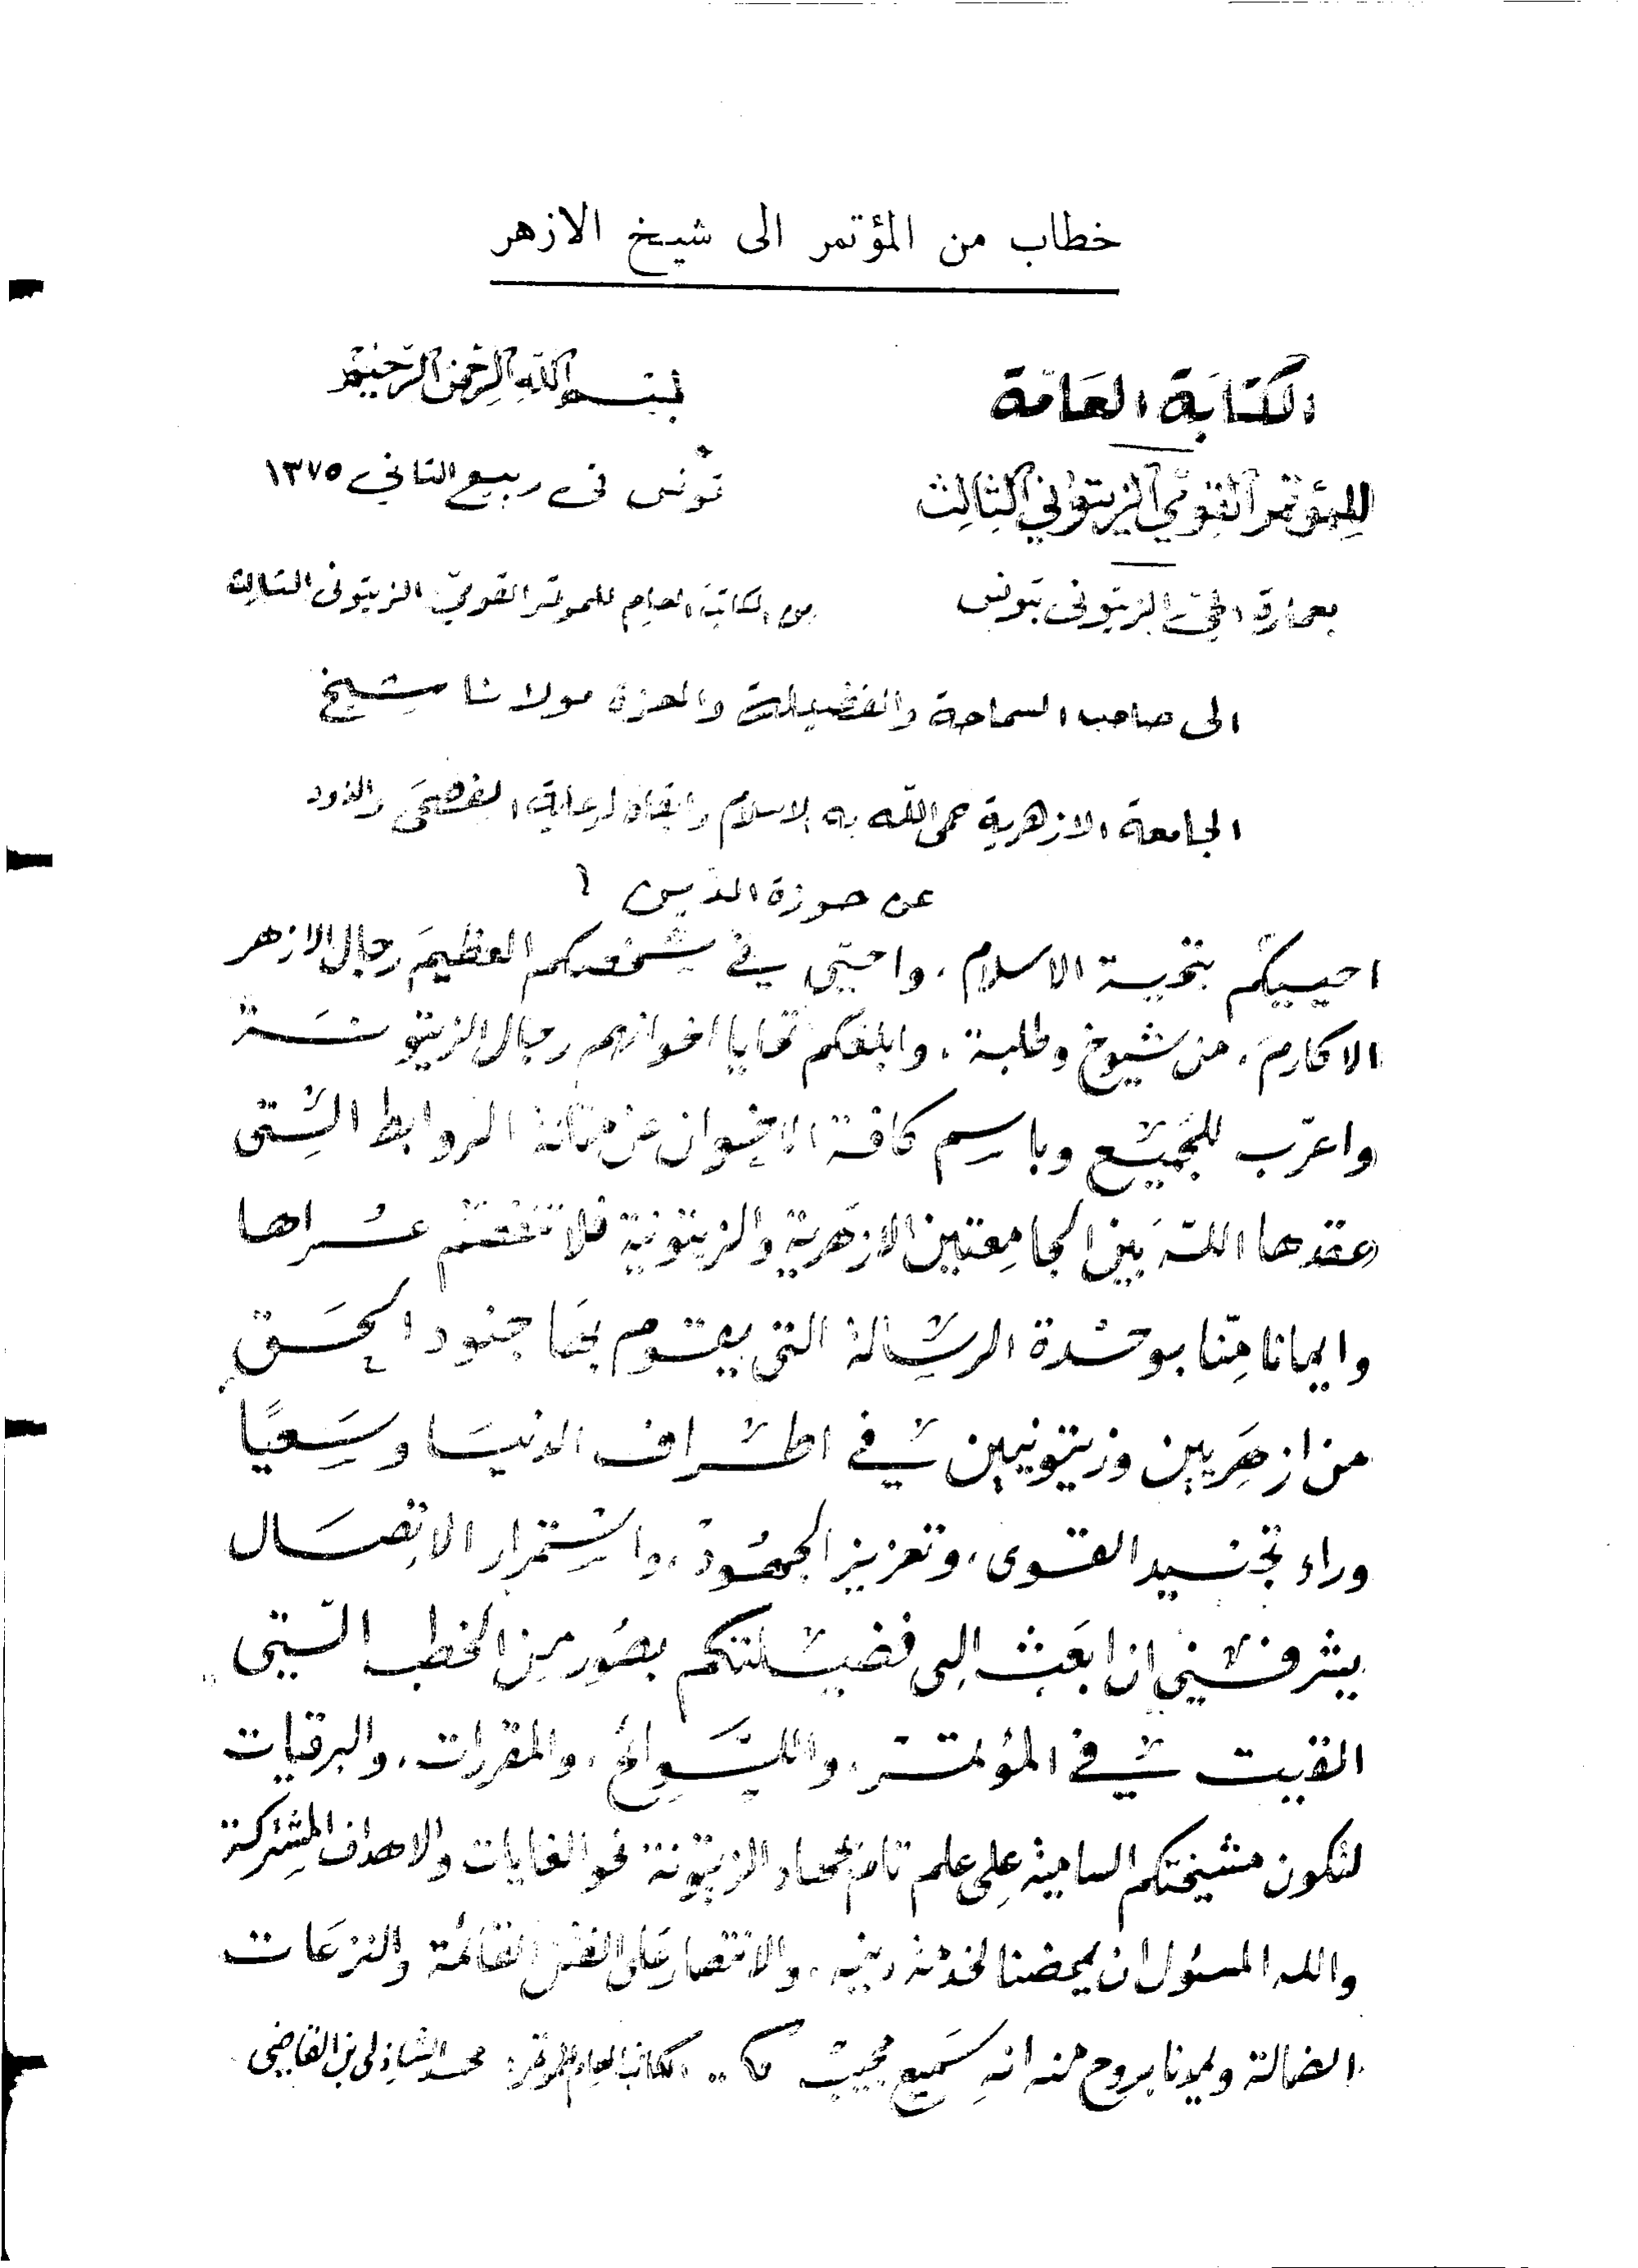 خطاب من المؤتمر الى شيخ الازهر
الكتابة العامة
للمؤتمر القومي الزيتوني الثالث
بعمارة الحي الزيتوني بتونس
بسم الله الرحمن الرحيم
تونس في ربيع الثاني ١٣٧٥
من الكاتب العام للمؤتمر القومي الزيتوني الثالث
الى صاحب السماحة والفضيلة والعزة مولانا شيخ
الجامعة الازهرية حمى الله به الاسلام وابقاه لرعاية الفصحى والذود
عن حوزة الدين
احييكم بتحية الاسلام، واحيي في شخصكم العظيم رجال الازهر
الاكارم، من شيوخ وطلبة، وابلغكم تحايا اخوانهم رجال الزيتونة
واعرب للجميع وباسم كافة الاخوان عن متانة الروابط التي
عقدها الله بين الجامعتين الازهرية والزيتونية فلا تنفصم عراها
وايمانا منا بوحدة الرسالة التي يقوم بها جنود الحق
من ازهريين وزيتونيين في اطراف الدنيا وسعيًا
وراء تجنيد القوى، وتعزيز الجهود، واستمرار الاتصال
يشرفني ان ابعث الى فضيلتكم بصور من الخطب التي
القيت في المؤتمر، واللوائح، والمقررات، والبرقيات
لتكون مشيختكم السامية على علم تام بجهاد الزيتونة نحو الغايات والاهداف المشتركة
والله المسئول ان يمحضنا لخدمة دينه، والانتصار على الفتن القائمة والنزعات
الضالة ويمدنا بروح منه انه سميع مجيب الكاتب العام للمؤتمر: محمد الشاذلي بن القاضي